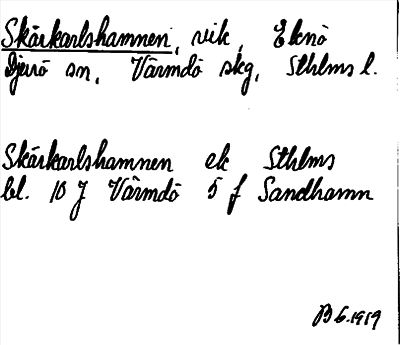 Skärkarlshamnen, vik, Eknö
Djurö sn, Värmdö skg, Sthlms l.
Skärkarlshamnen ek Sthlms
bl. 10 J Värmdö 5 f Sandhamn
B 6.1919